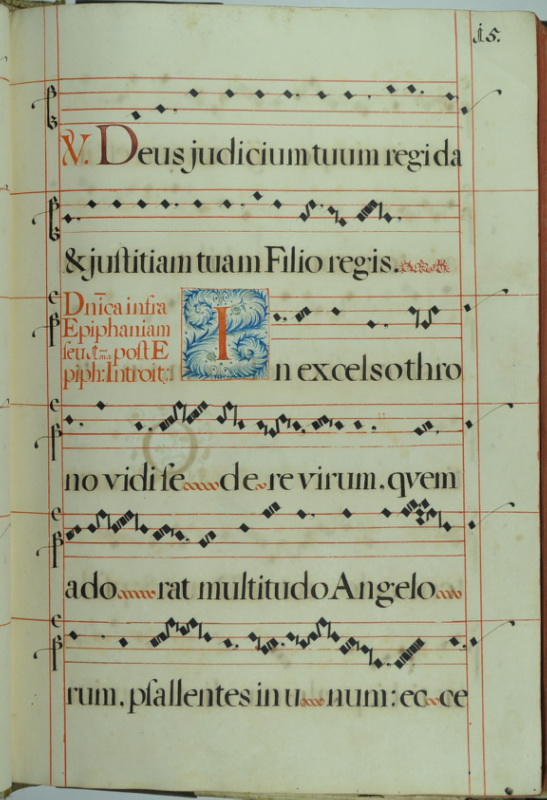 15.
V. Deus judicium tuum regi da
& juſtitiam tuam Filio regis.
Dñica infra
Epiphaniam
ſeu A.ma poſt E
piph: Introit:
In excelso thro
no vidi ſe de re virum, qvem
ado rat multitudo Angelo
rum, pſallentes in u num: ec ce